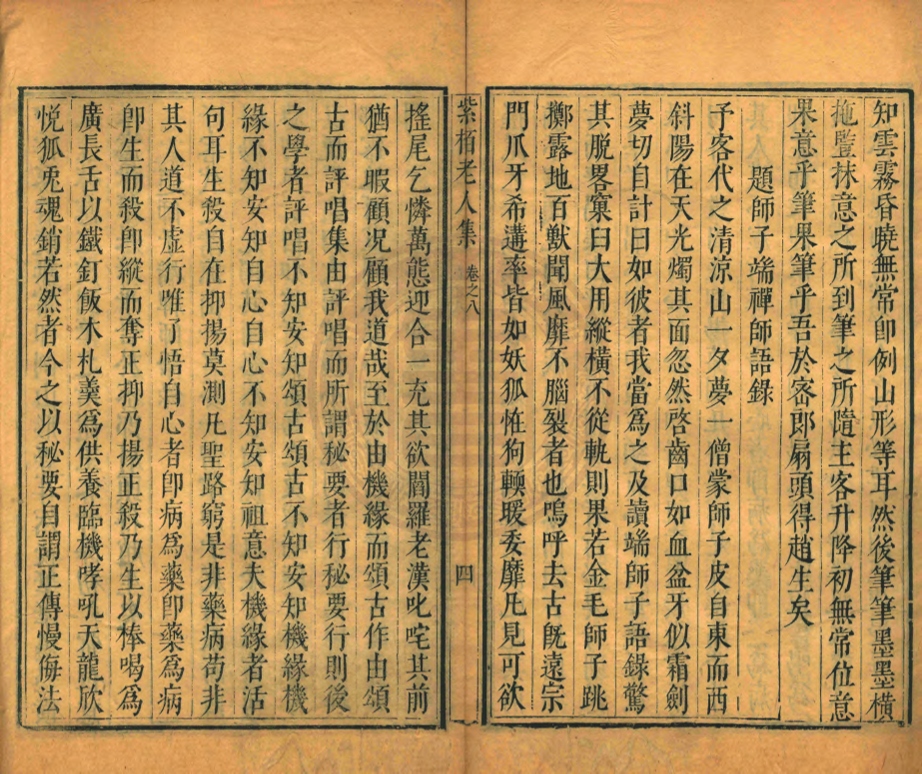 知雲霧昏曉無常卽例山形等耳然後筆筆墨墨橫
拖豎抹意之所到筆之所隨主客升降初無常位意
果意乎筆果筆乎吾於密郎扇頭得趙生矣
題師子端禪師語錄
予客代之清涼山一夕夢一僧蒙師子皮自東而西
斜陽在天光燭其面忽然啓齒口如血盆牙似霜劍
夢切自計曰如彼者我當爲之及讀端師子語錄驚
其脫畧窠臼大用縱橫不從軌則果若金毛師子跳
擲露地百獸聞風靡不腦裂者也嗚呼去古旣遠宗
門爪牙希遘率皆如妖狐恠狗輭暖委靡凡見可欲
紫栢老人集 卷之八 四
搖尾乞憐萬態迎合一充其欲閻羅老漢叱咤其前
猶不暇顧况顧我道哉至於由機緣而頌古作由頌
古而評唱集由評唱而所謂秘要者行秘要行則後
之學者評唱不知安知頌古頌古不知安知機緣機
緣不知安知自心自心不知安知祖意夫機緣者活
句耳生殺自在抑揚莫測凡聖路窮是非藥病苟非
其人道不虛行唯了悟自心者卽病爲藥卽藥爲病
卽生而殺卽縱而奪正抑乃揚正殺乃生以棒喝爲
廣長舌以鐵釘飯木札羹爲供養臨機哮吼天龍欣
悅狐兎魂銷若然者今之以秘要自謂正傳慢侮法